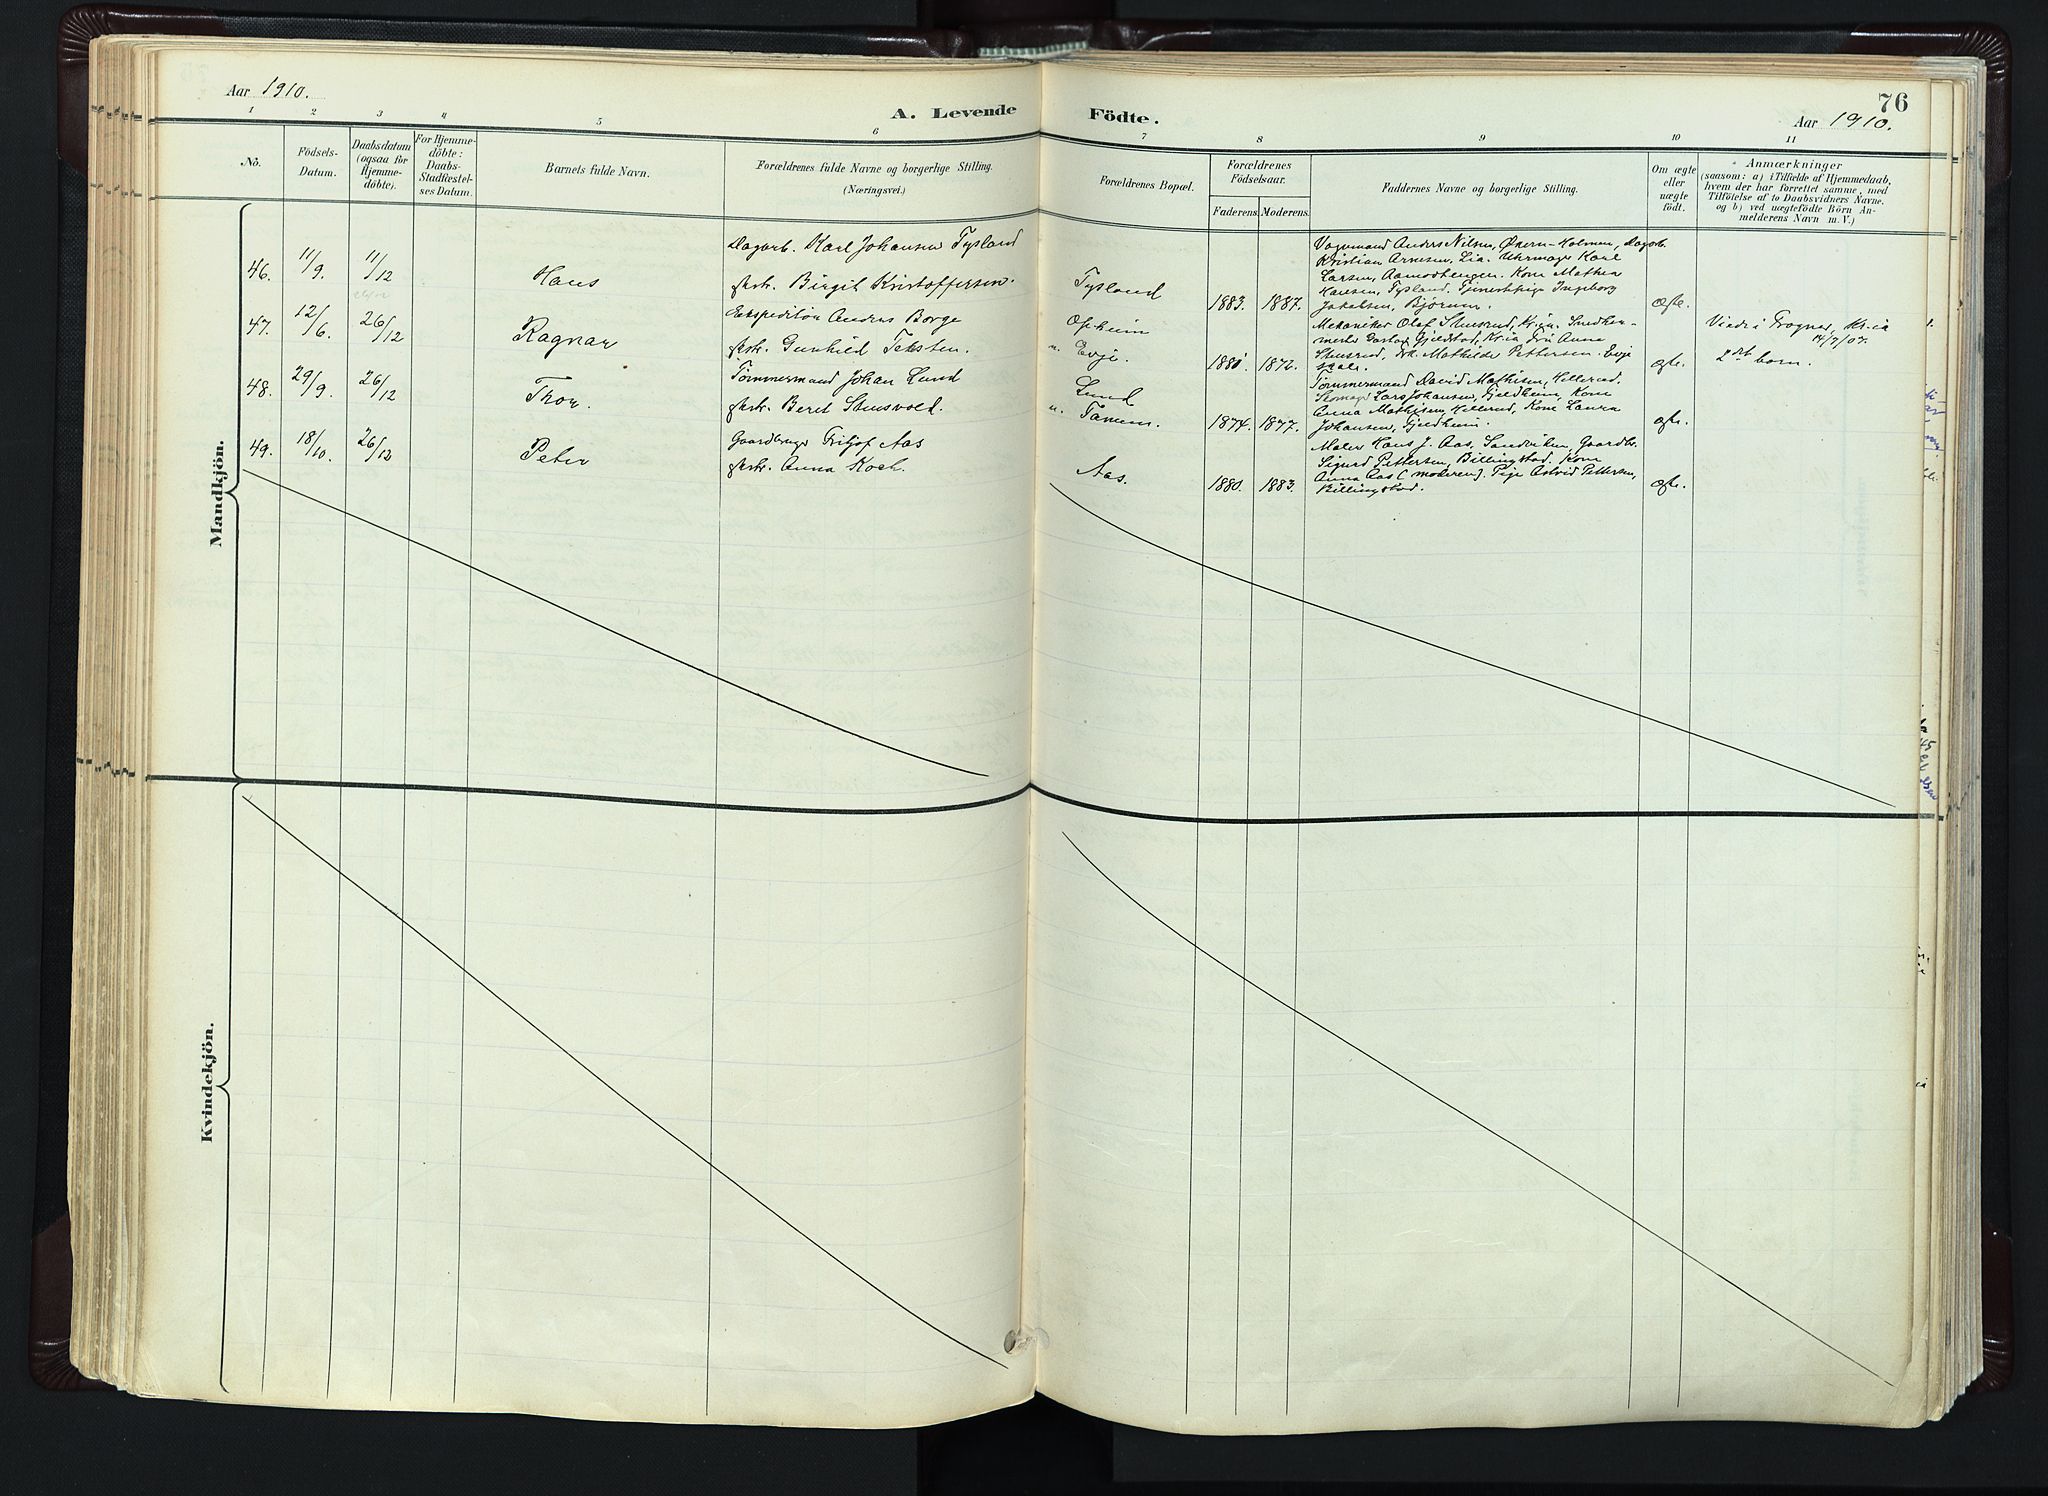 76
Aar 1910.
Aar 1910.
A. Levende Födte.
1 2 3 4 5 6 7 8 9 10 11
No.
Födsels-
Datum.
Daabsdatum
(ogsaa for
Hjemme-
döbte).
For Hjemme-
döbte:
Daabs-
Stadfæstel-
ses Datum.
Barnets fulde Navn.
Forældrenes fulde Navne og borgerlige Stilling.
(Næringsvei.)
Forældrenes Bopæl.
Forældrenes
Födselsaar.
Faderens. Moderens.
Faddernes Navne og borgerlige Stilling.
Om ægte
eller
uægte
födt.
Anmærkninger
(saasom: a) i Tilfælde af Hjemmedaab,
hvem der har forrettet samme, med
Tilföielse af to Daabsvidners Navne,
og b) ved uægtefödte Börn An-
melderens Navn m. V.)
Mandkjön.
46. 11/9. 11/12 Hans
Dagarb. Karl Johansen Tysland
Birgit Kristoffersen.
Tysland
1883. 1887.
Anders Nilsen, Økern-Holmen, Dagarb.
Kristian Arnesen, Lia. Uhrmager Karl
Larsen, Aamodtengen. Kone Mathea
Hansen, Tysland. Tjenestepige Ingeborg
Jakobsen, Bjørum.
ægte.
47. 12/6. 26/12 Ragnar
Ekspeditør Anders Borge
Gunhild Teksten.
Opheim
Evje.
1881. 1872.
Mekaniker Olaf Stensrud, Kr.ia. Snedker-
mester Gustav Gjeldstad, Kr.ia Fru Anna
Stensrud, Mathilde Pettersen. Evje
skole.
ægte.
Viede i Frogner, Kr.ia
14/7/07.
2det barn.
48. 29/9. 26/12 Thor.
Tømmermand Johan Lund
Beret Stensvold.
Lund
Tanum.
1874. 1877.
Tømmermand David Mathisen, Hellerud.
Skomager Lars Johansen, Gjeldheim, Kone
Anna Mathisen, Hellerud, Kone Laura
Johansen, Gjeldheim.
ægte.
49. 18/10. 26/12 Peter
Gaardbruger Fritjof Aas
Anna Koch.
Aas.
1880. 1883.
Maler Hans J. Aas, Sandviken, Gaardbr.
Sigurd Pettersen, Billingstad. Kone
Anna Aas (moderen). Pige Astrid Pettersen,
Billingstad.
ægte.
Kvindekjön.